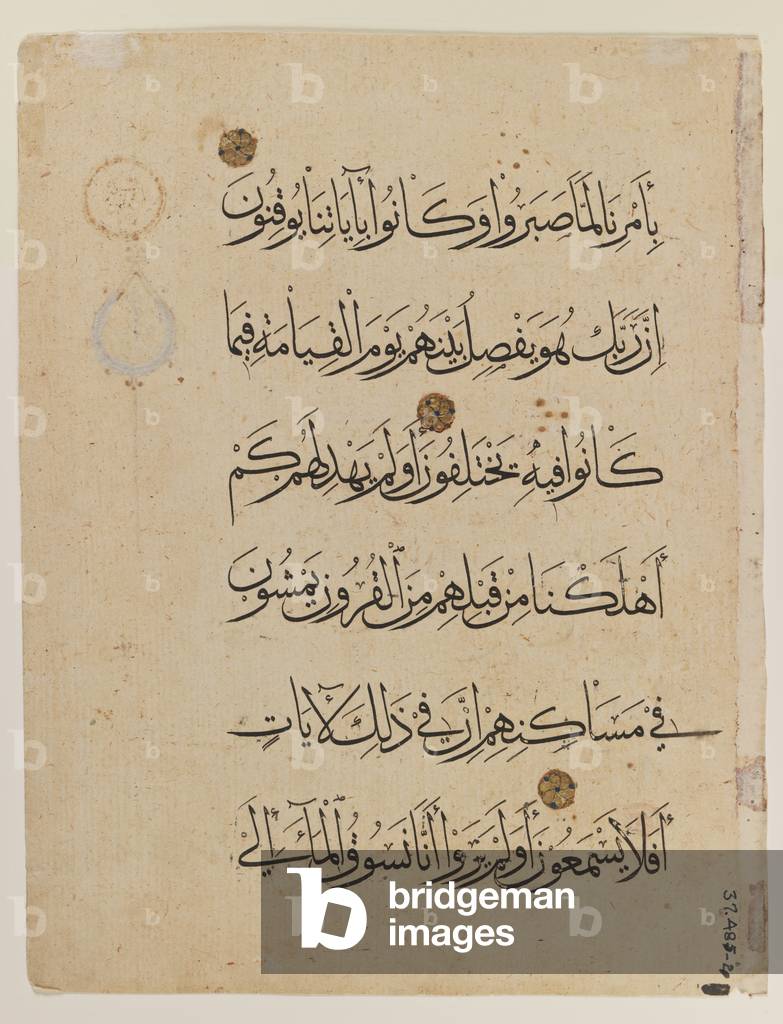 بِأَمْرِنَا لَمَّا صَبَرُوا وَكَانُوا بِآيَاتِنَا يُوقِنُونَ
إِنَّ رَبَّكَ هُوَ يَفْصِلُ بَيْنَهُمْ يَوْمَ الْقِيَامَةِ فِيمَا
كَانُوا فِيهِ يَخْتَلِفُونَ أَوَلَمْ يَهْدِ لَهُمْ كَمْ
أَهْلَكْنَا مِنْ قَبْلِهِمْ مِنَ الْقُرُونِ يَمْشُونَ
فِي مَسَاكِنِهِمْ إِنَّ فِي ذَلِكَ لَآيَاتٍ
أَفَلَا يَسْمَعُونَ أَوَلَمْ يَرَوْا أَنَّا نَسُوقُ الْمَاءَ إِلَى
bridgeman
images